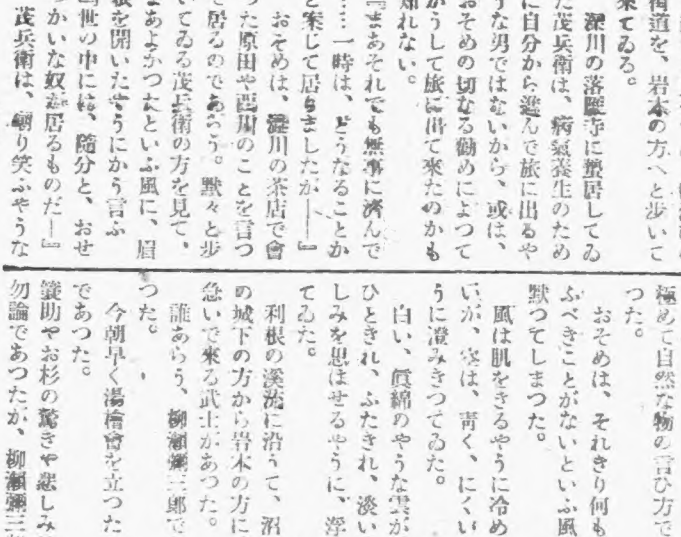 街道を、岩本の方へと歩いて
来てゐる。
深川の落
寺に蟄居してゐ
た茂兵衛は、病氣養生のため
に自分から進んで旅に出るや
うな男ではないから、或は、
おそめの切なる勸めによつて
かうして旅に出て來たのかも
知れない。
『まあそれでも無事に濟んで
……一時は、どうなることか
と案じて居りましたが――』
おそめは、澁川の茶店で會
つた原田や西川のことを言つ
て居るのであらう。默々と步
いてゐる茂兵衛の方を見て、
まあよかつたといふ風に、眉
根を開いたやうにかう言ふ
世の中には、隨分と、おせ
つかいな奴が居るものだ―』
茂兵衛は、嘲り笑ふやうな
極めて自然な物の言ひ方で
つた。
おそめは、それきり何も
ふべきことがないといふ風
默つてしまつた。
風は肌をきるやうに冷め
いが、空は、靑く、にくい
うに澄みきつてゐた。
白い、眞綿のやうな雲が
ひときれ、ふたきれ、淡い
しみを思はせるやうに、浮
てゐた。
利根の溪流に沿うて、沼
の城下の方から岩本の方に
急いで來る武士があつた。
誰あらう、柳瀨彌三郎で
つた。
今朝早く湯檜曾を立つた
であつた。
簑助やお杉の驚きや悲しみ
勿論であつたが、柳瀨彌三